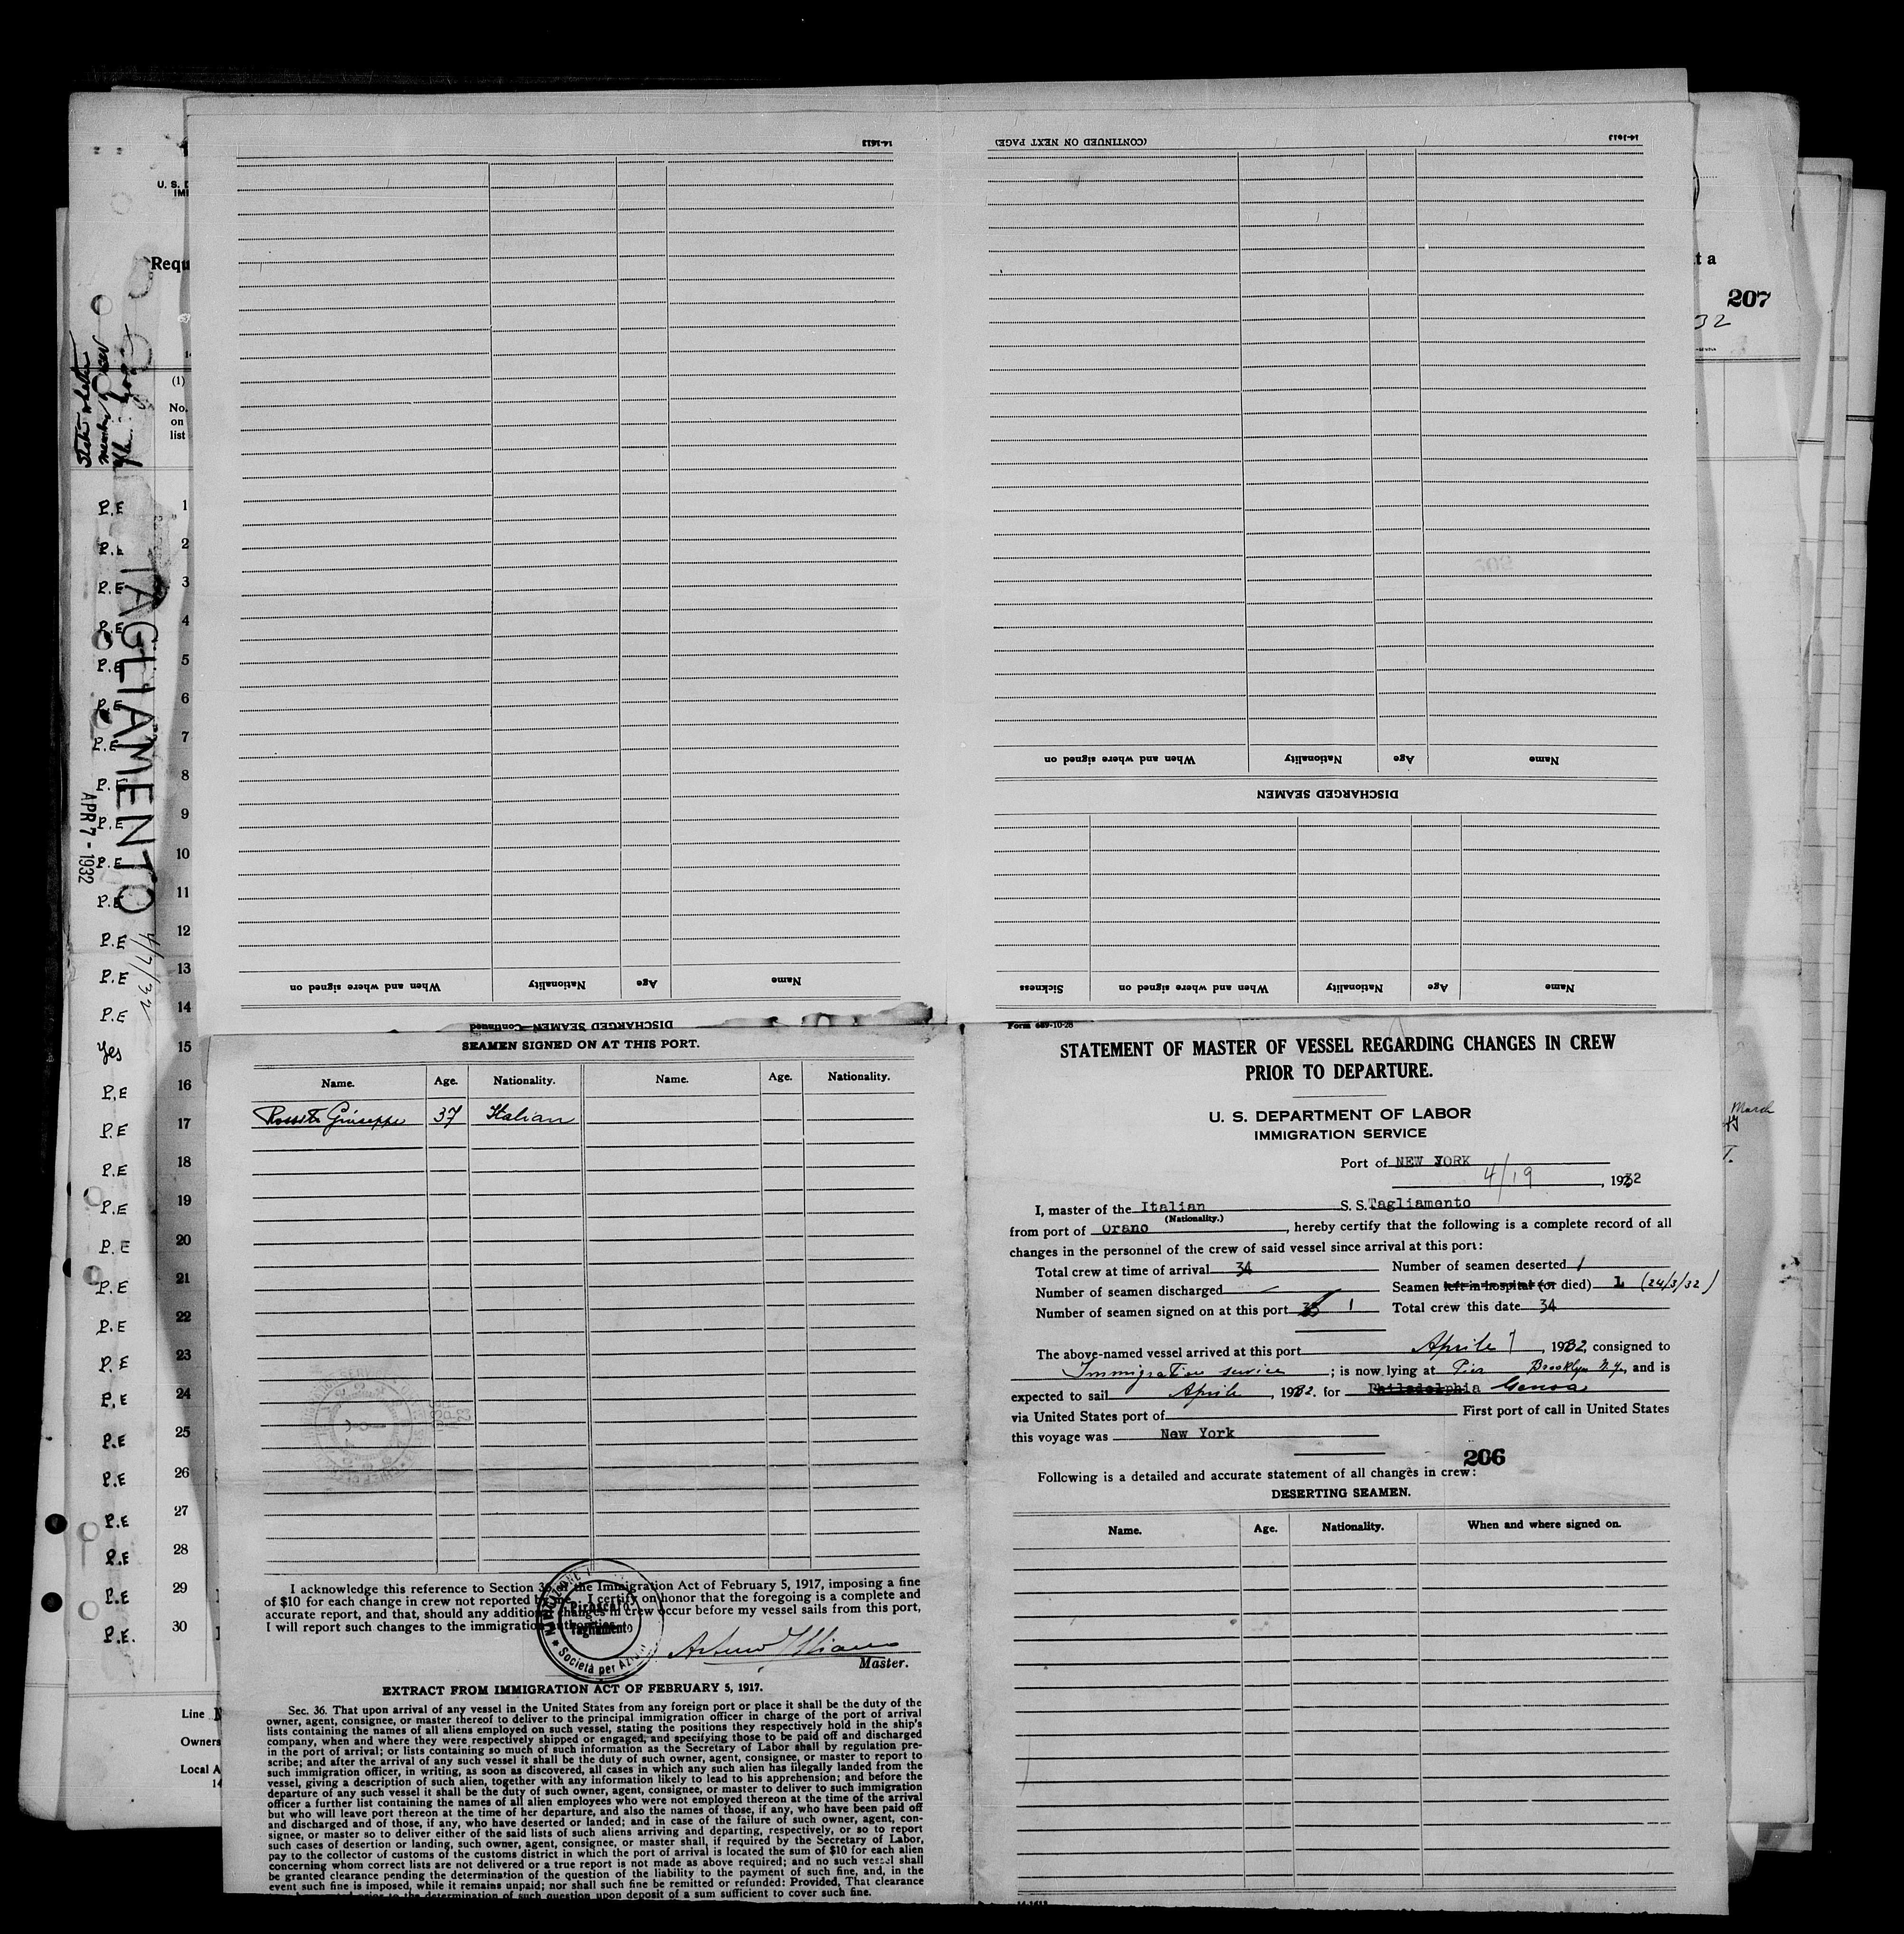 14-1613
When and where signed on Nationality Age Name
DISCHARGED SEAMEN—Continued
(CONTINUED ON NEXT PAGE) 14-1613
When and where signed on Nationality Age Name
DISCHARGED SEAMEN
Sickness When and where signed on Nationality Age Name
U. S. D
IMI
Requ
(1)
No.
on
list
TAGLIAMENTO 4/7/32
APR 7 - 1932
P.E 1
P.E 2
P.E 3
P.E 4
P.E 5
P.E 6
P.E 7
P.E 8
P.E 9
P.E 10
P.E 11
P.E 12
P.E 13
P.E 14
Yes 15
P.E 16
P.E 17
P.E 18
P.E 19
P.E 20
P.E 21
P.E 22
P.E 23
P.E 24
P.E 25
P.E 26
P.E 27
P.E 28
P.E 29
P.E. 30
Line
Owners
Local A
14
t a
207
32
March
SEAMEN SIGNED ON AT THIS PORT.
Name. Age. Nationality. Name. Age. Nationality.
Giuseppe 37 Italian
I acknowledge this reference to Section 36 of the Immigration Act of February 5, 1917, imposing a fine
of $10 for each change in crew not reported by me. I certify on honor that the foregoing is a complete and
accurate report, and that, should any additional changes in crew occur before my vessel sails from this port,
I will report such changes to the immigration authorities.
Piroscafo
Tagliamento
Società per Azioni
Arturo
Master.
EXTRACT FROM IMMIGRATION ACT OF FEBRUARY 5, 1917.
Sec. 36. That upon arrival of any vessel in the United States from any foreign port or place it shall be the duty of the
owner, agent, consignee, or master thereof to deliver to the principal immigration officer in charge of the port of arrival
lists containing the names of all aliens employed on such vessel, stating the positions they respectively hold in the ship's
company, when and where they were respectively shipped or engaged, and specifying those to be paid off and discharged
in the port of arrival; or lists containing so much of such information as the Secretary of Labor shall by regulation pre-
scribe; and after the arrival of any such vessel it shall be the duty of such owner, agent, consignee, or master to report to
such immigration officer, in writing, as soon as discovered, all cases in which any such alien has illegally landed from the
vessel, giving a description of such alien, together with any information likely to lead to his apprehension; and before the
departure of any such vessel it shall be the duty of such owner, agent, consignee, or master to deliver to such immigration
officer a further list containing the names of all alien employees who were not employed thereon at the time of the arrival
but who will leave port thereon at the time of her departure, and also the names of those, if any, who have been paid off
and discharged and of those, if any, who have deserted or landed; and in case of the failure of such owner, agent, con-
signee, or master so to deliver either of the said lists of such aliens arriving and departing, respectively, or so to report
such cases of desertion or landing, such owner, agent, consignee, or master shall, if required by the Secretary of Labor,
pay to the collector of customs of the customs district in which the port of arrival is located the sum of $10 for each alien
concerning whom correct lists are not delivered or a true report is not made as above required; and no such vessel shall
be granted clearance pending the determination of the question of the liability to the payment of such fine, and, in the
event such fine is imposed, while it remains unpaid; nor shall such fine be remitted or refunded: Provided, That clearance
prior to the determination of such question upon deposit of a sum sufficient to cover such fine.
Form 689-10-28
STATEMENT OF MASTER OF VESSEL REGARDING CHANGES IN CREW
PRIOR TO DEPARTURE.
U. S. DEPARTMENT OF LABOR
IMMIGRATION SERVICE
Port of NEW YORK
4/19, 1932
I, master of the Italian S. S. Tagliamento
(Nationality.)
from port of Orano, hereby certify that the following is a complete record of all
changes in the personnel of the crew of said vessel since arrival at this port:
Total crew at time of arrival 34 Number of seamen deserted 1
Number of seamen discharged Seamen left in hospital (or died) 1 (24/3/32)
Number of seamen signed on at this port 1 Total crew this date 34
The above-named vessel arrived at this port Aprile 7, 1932, consigned to
Immigration service; is now lying at Pier Brooklyn N.Y., and is
expected to sail Aprile, 1932. for Philadelphia Genoa
via United States port of First port of call in United States
this voyage was New York
206
Following is a detailed and accurate statement of all changes in crew:
DESERTING SEAMEN.
Name. Age. Nationality. When and where signed on.
14-1613